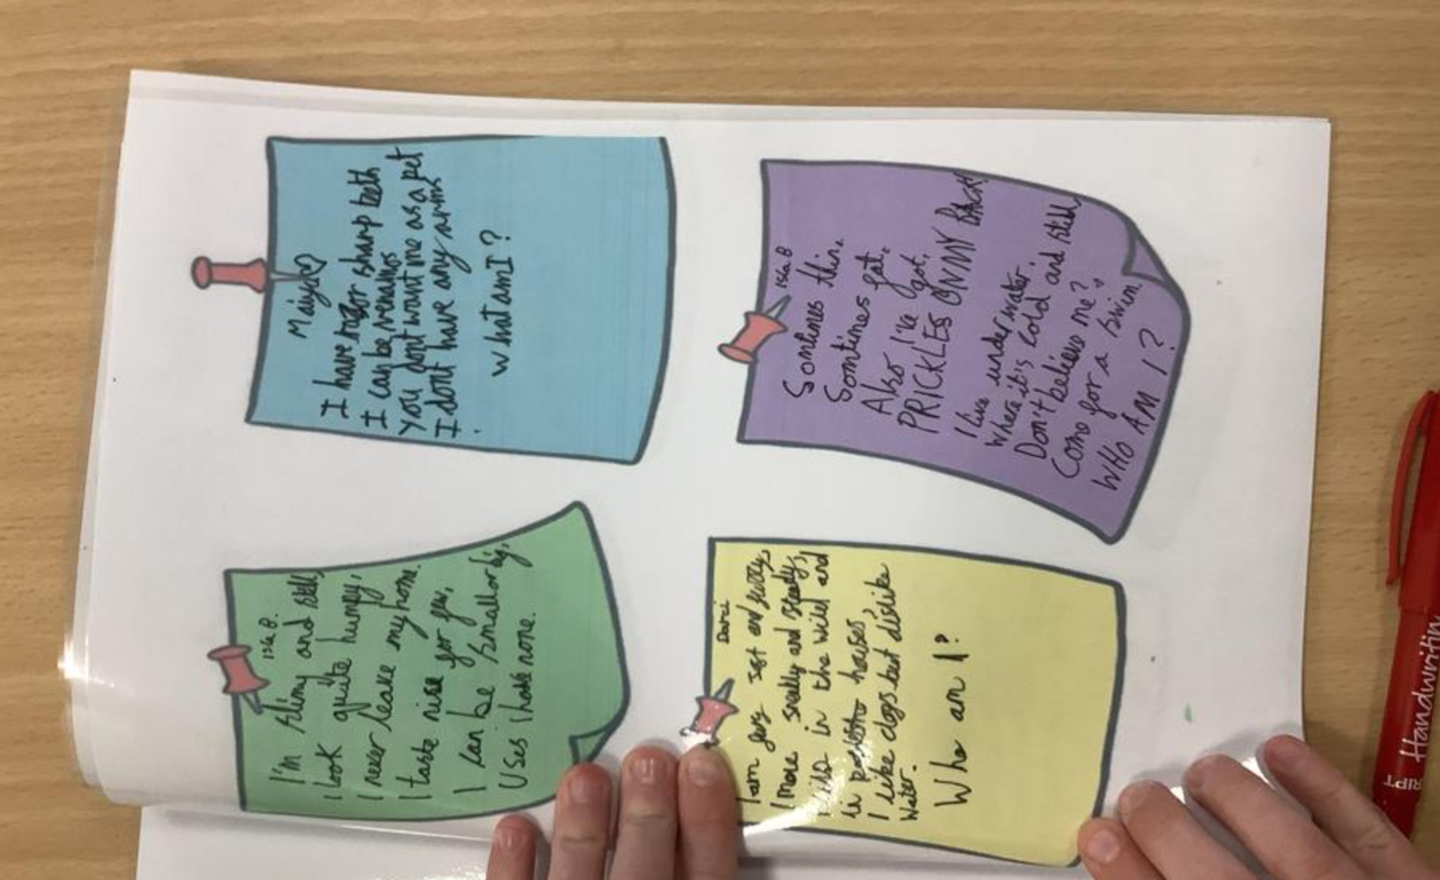 Isla B.
I'm slimy and still,
I look quite humpy,
I never leave my home.
I taste nise for you,
I can be small or big,
Uses I have none.
Maiya
I have razor sharp teeth
I can be venemas
You dont want me as a pet
I dont have any arms
.
what am I?
Darci
I am grey soft and
I move snelly and
in the wild and
in houses,
I like dogs but dislike
water.
Who am I?
Isla B
Somtimes thin,
Somtimes fat.
Also I've got,
PRICKLES ON MY BACK!
I live under water,
Where it's cold and still,
Don't believe me?
Come for a swim.
WHO AM I?
Handwritin
RIPT